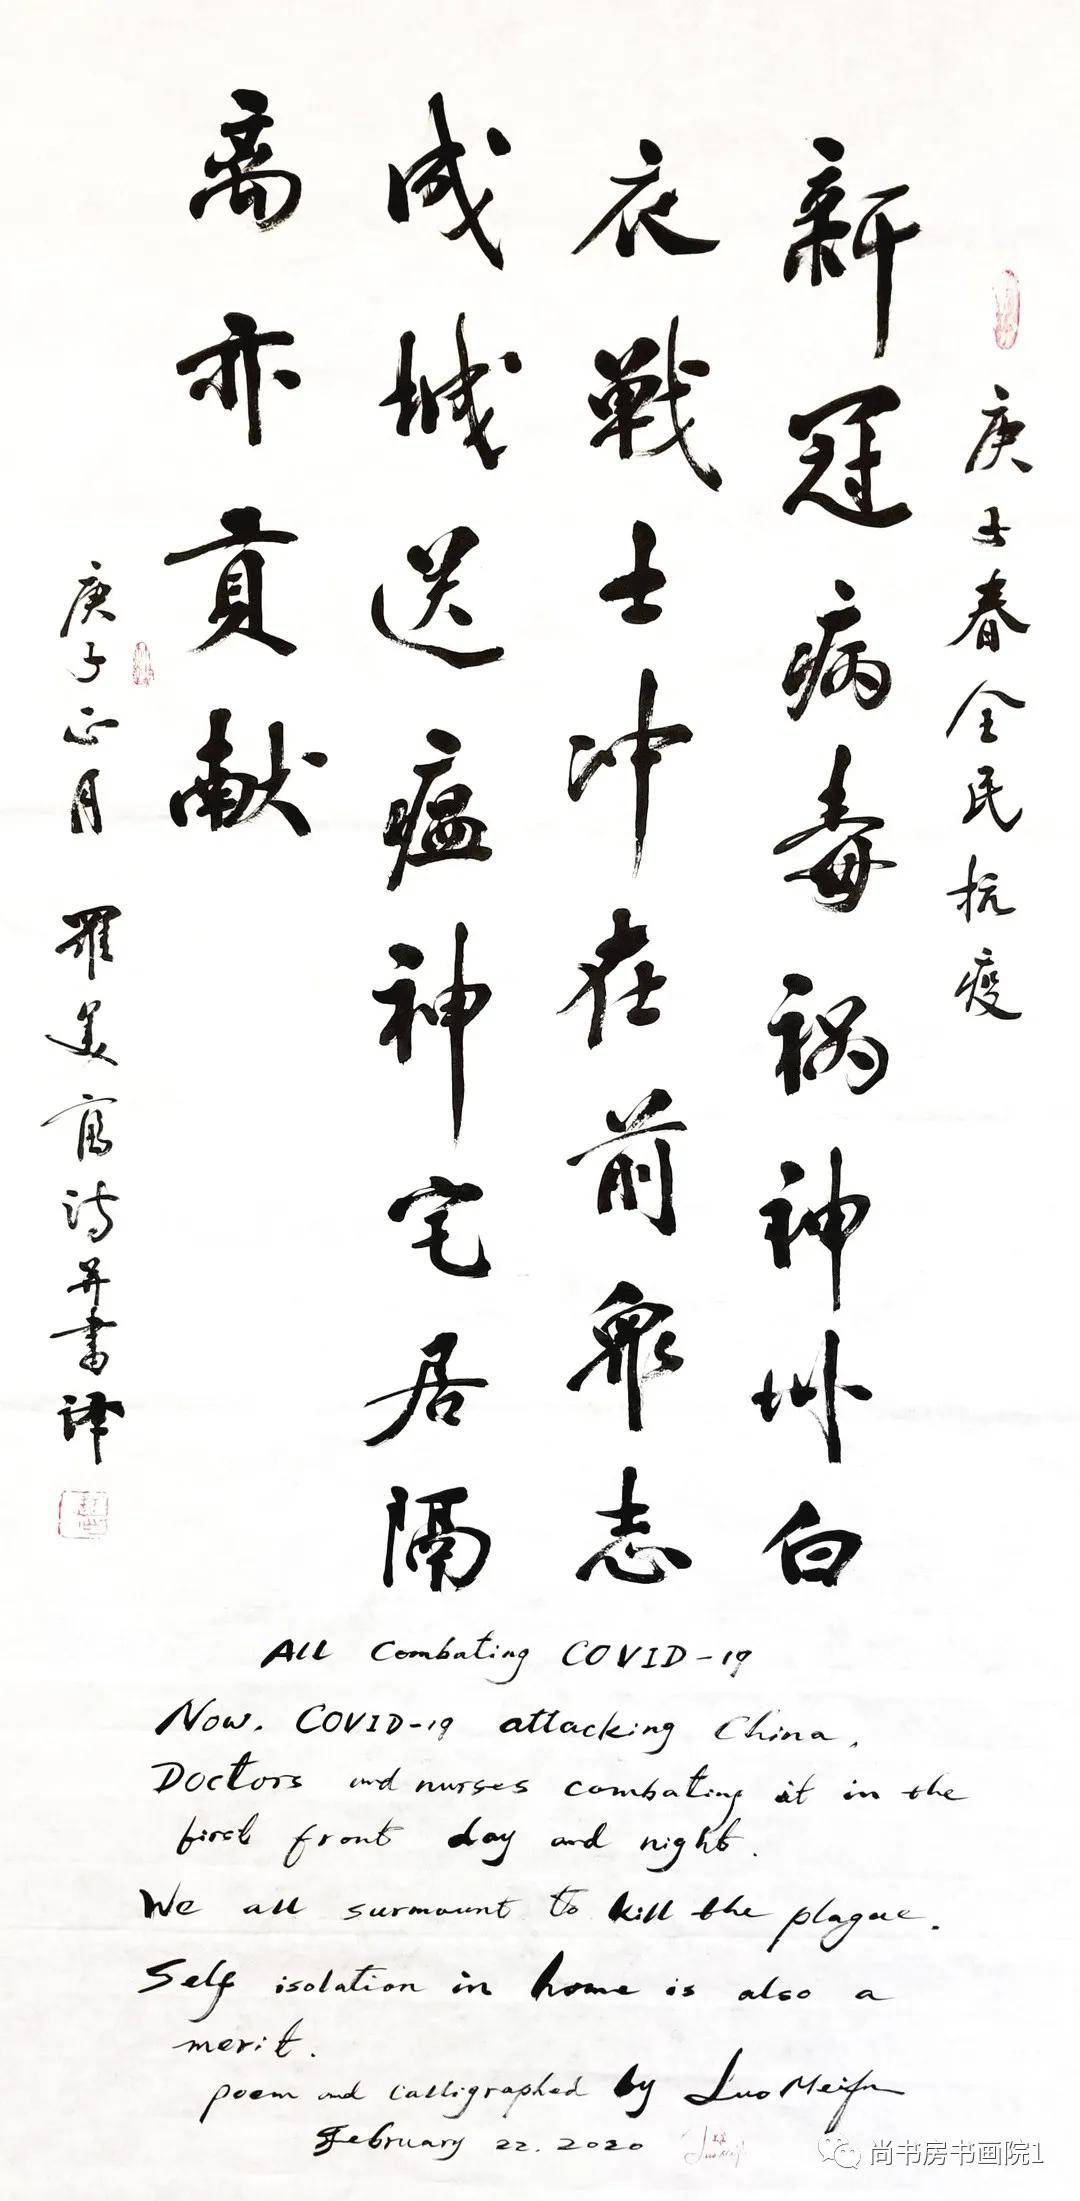 庚子春全民抗疫
新冠病毒祸神州白
衣戰士冲在前眾志
成城送瘟神宅居隔
离亦貢献
庚子正月 羅美富诗并書译
All Combating COVID-19
Now. COVID-19 attacking China.
Doctors and nurses combating it in the
first front day and night.
We all surmount to kill the plague.
Self isolation in home is also a
merit.
poem and calligraphed by Luo Meifu
February 22. 2020
尚书房书画院1